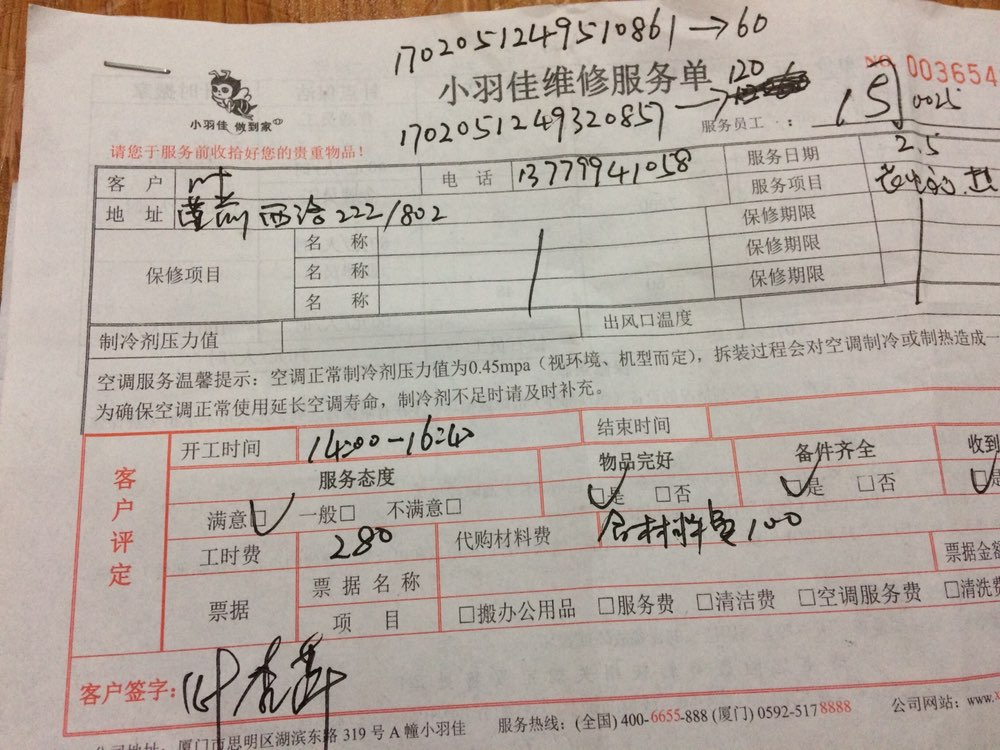 1702051249510861→60
小羽佳维修服务单 120
NO 003654
小羽佳 做到家
1702051249320857→
服务员工： 0025
请您于服务前收拾好您的贵重物品！
客户 叶 电话 13779941058 服务日期 2.5
地址 莲前西洽222/802 服务项目
保修项目 名称 保修期限
名称 保修期限
名称 保修期限
制冷剂压力值 出风口温度
空调服务温馨提示：空调正常制冷剂压力值为0.45mpa（视环境、机型而定），拆装过程会对空调制冷或制热造成一
为确保空调正常使用延长空调寿命，制冷剂不足时请及时补充。
客户评定
开工时间 14:00-16:40 结束时间
服务态度 物品完好 备件齐全 收到
满意□ 一般□ 不满意□ □是 □否 □是 □否 □是
工时费 280 代购材料费 含材料费100
票据 票据名称 票据金额
项目 □搬办公用品 □服务费 □清洁费 □空调服务费 □清洗费
客户签字：叶
公司地址：厦门市思明区湖滨东路319号A幢小羽佳 服务热线：(全国) 400-6655-888 (厦门) 0592-5178888 公司网站：www.x